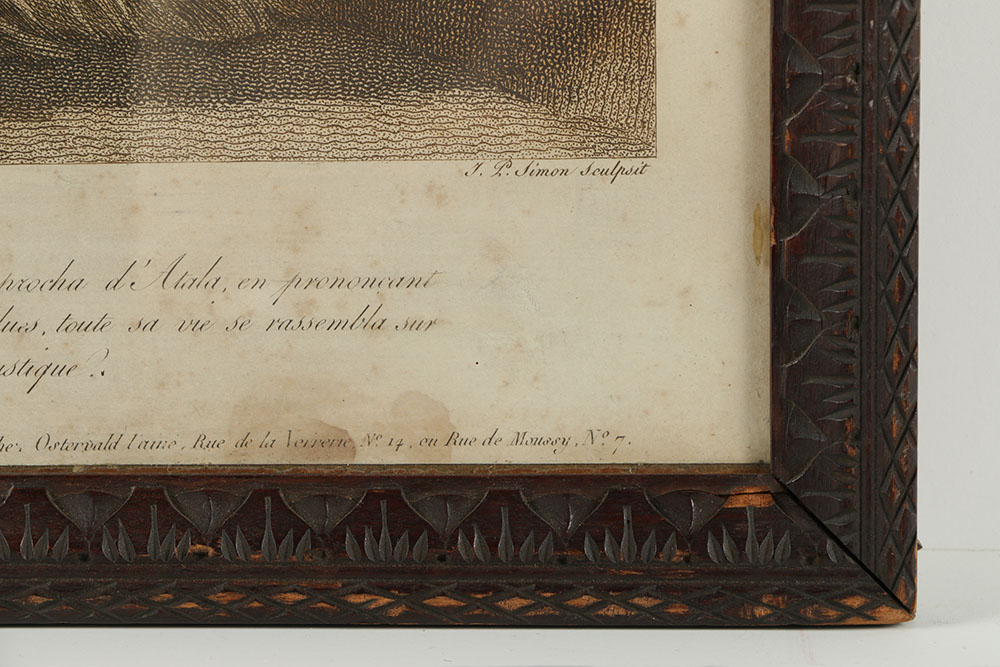 J. P. Simon Sculpsit
procha d'Atala, en prononçant
dues, toute sa vie se rassembla sur
ustique?.
he: Ostervald l'ainé, Rue de la Verrerie, Nº 14, ou Rue de Moussy, Nº 7.